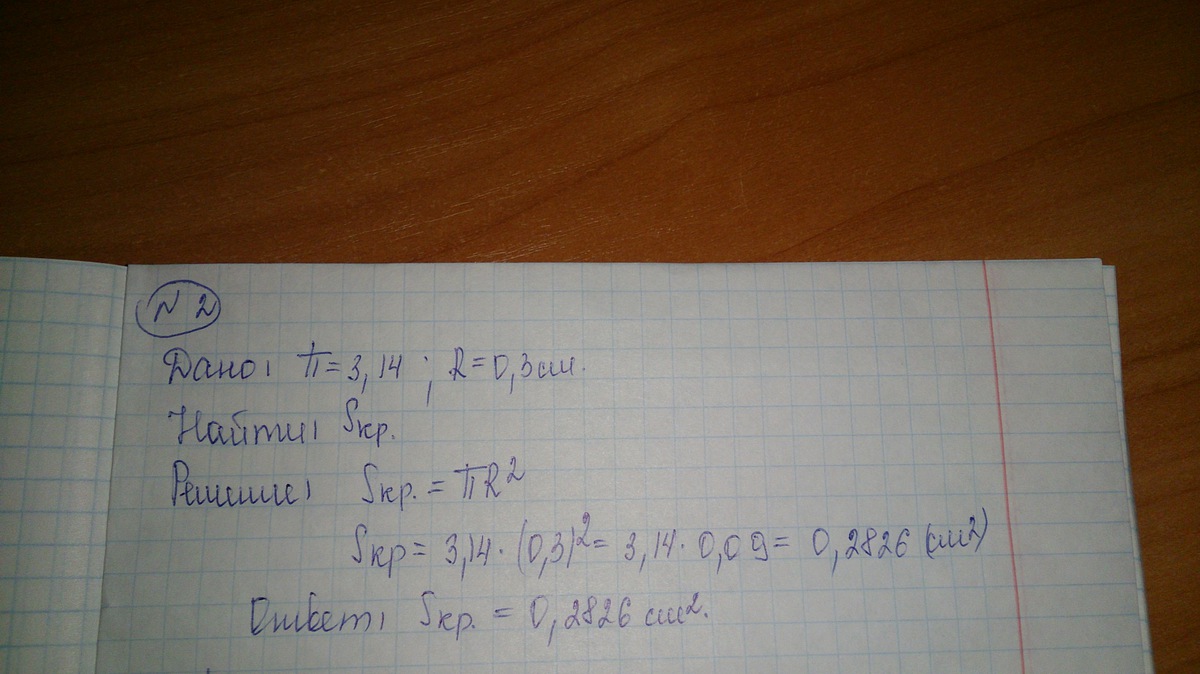 N 2
Дано: π = 3,14 ; R = 0,3 см.
Найти: Sкр.
Решение: Sкр. = πR²
Sкр = 3,14 · (0,3)² = 3,14 · 0,09 = 0,2826 (см²)
Ответ: Sкр. = 0,2826 см².